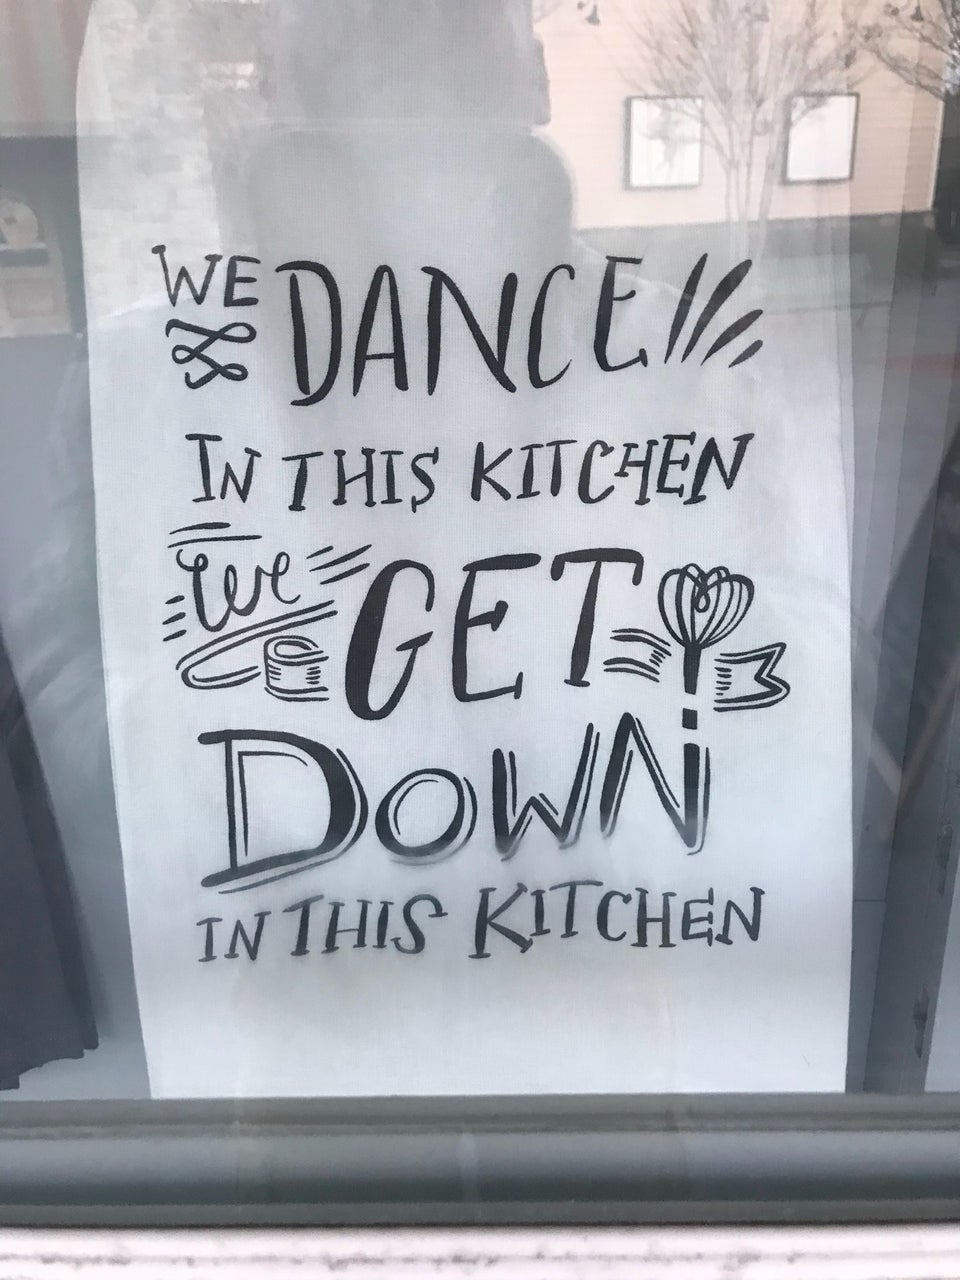 WE DANCE
IN THIS KITCHEN
We GET
DOWN
IN THIS KITCHEN